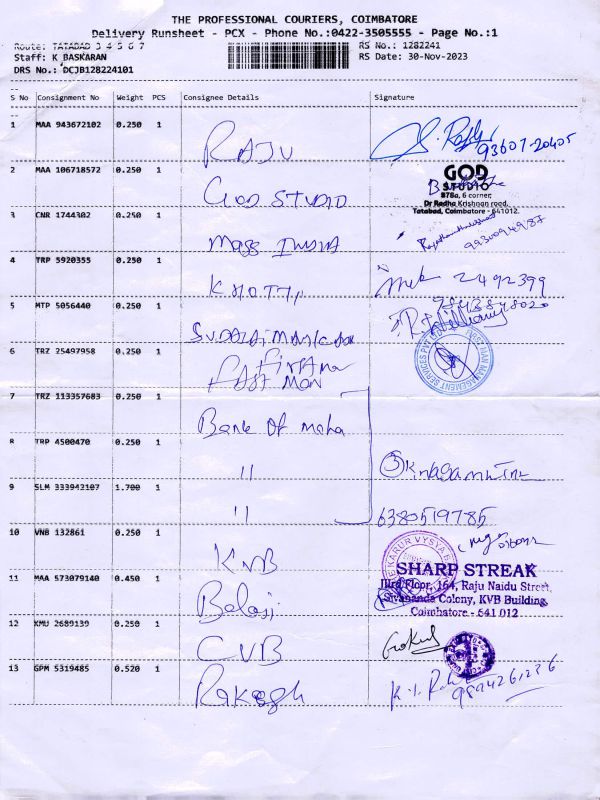 THE PROFESSIONAL COURIERS, COIMBATORE
Delivery Runsheet - PCX - Phone No.:0422-3505555 - Page No.:1
Route: TATABAD 3 4 5 6 7 RS No.: 1282241
Staff: K BASKARAN RS Date: 30-Nov-2023
DRS No.: DCJB128224101
S No Consignment No Weight PCS Consignee Details Signature
1 MAA 943672102 0.250 1
RAJU
93607-20405
2 MAA 106718572 0.250 1
GOD STUDIO
GOD
STUDIO
878a, 6 corner,
Dr Radha Krishnan road,
Tatabad, Coimbatore - 641012.
3 CNR 1744302 0.250 1
Mass INDIA
4 TRP 5920355 0.250 1
2492399
5 MTP 5056440 0.250 1
6 TRZ 25497958 0.250 1
FAST MAN
7 TRZ 113357683 0.250 1
Bank Of maha
8 TRP 4500470 0.250 1
11
9 SLM 333942107 1.700 1
11
6380519785
10 VNB 132861 0.250 1
KVB
SHARP STREAK
IIIrd Floor, 164, Raju Naidu Street,
Sivananda Colony, KVB Building,
Coimbatore - 641 012
11 MAA 573079140 0.450 1
Balaji
12 KMU 2689139 0.250 1
CVB
Gokul
13 GPM 5319485 0.520 1
Rakesh